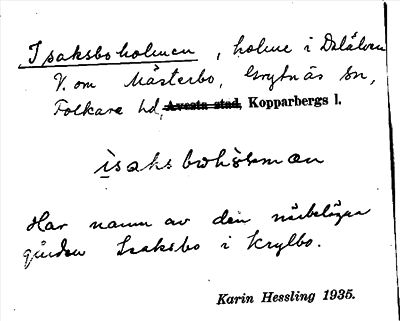 Isaksboholmen, holme i Dalälven
V. om Mästerbo, Grytnäs sn,
Folkare hd, Avesta stad, Kopparbergs l.
ìsaksbωhòlmæn
Har namn av den närbelägna
gården Isaksbo i Krylbo.
Karin Hessling 1935.